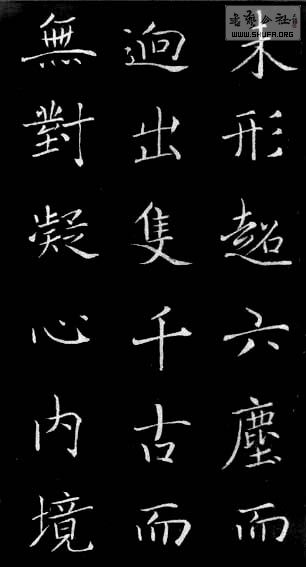 未形超六塵而
迥出隻千古而
無對凝心内境
書法公社
WWW.SHUFA.ORG